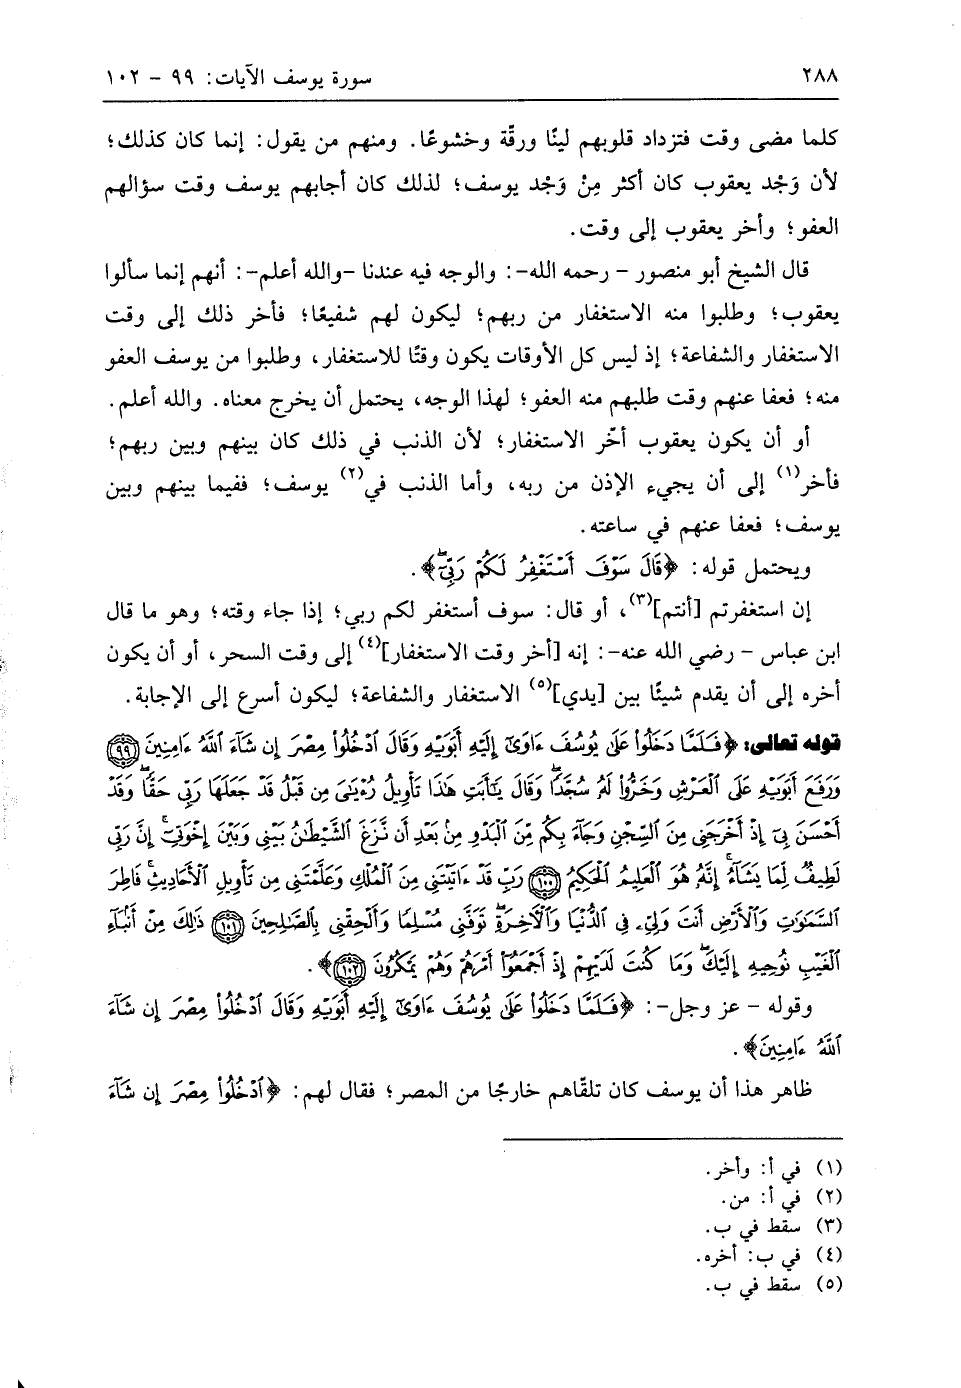 ٢٨٨ سورة يوسف الآيات: ٩٩ - ١٠٢
كلما مضى وقت فتزداد قلوبهم لينًا ورقّة وخشوعًا. ومنهم من يقول: إنما كان كذلك؛
لأن وَجْد يعقوب كان أكثر مِنْ وَجْد يوسف؛ لذلك كان أجابهم يوسف وقت سؤالهم
العفو؛ وأخر يعقوب إلى وقت.
قال الشيخ أبو منصور - رحمه الله-: والوجه فيه عندنا -والله أعلم-: أنهم إنما سألوا
يعقوب؛ وطلبوا منه الاستغفار من ربهم؛ ليكون لهم شفيعًا؛ فأخر ذلك إلى وقت
الاستغفار والشفاعة؛ إذ ليس كل الأوقات يكون وقتًا للاستغفار، وطلبوا من يوسف العفو
منه؛ فعفا عنهم وقت طلبهم منه العفو؛ لهذا الوجه، يحتمل أن يخرج معناه. والله أعلم.
أو أن يكون يعقوب أخّر الاستغفار؛ لأن الذنب في ذلك كان بينهم وبين ربهم؛
فأخر(١) إلى أن يجيء الإذن من ربه، وأما الذنب في(٢) يوسف؛ ففيما بينهم وبين
يوسف؛ فعفا عنهم في ساعته.
ويحتمل قوله: ﴿قَالَ سَوْفَ أَسْتَغْفِرُ لَكُمْ رَبِّيٓ﴾.
إن استغفرتم [أنتم](٣)، أو قال: سوف أستغفر لكم ربي؛ إذا جاء وقته؛ وهو ما قال
ابن عباس - رضي الله عنه-: إنه [أخر وقت الاستغفار](٤) إلى وقت السحر، أو أن يكون
أخره إلى أن يقدم شيئًا بين [يدي](٥) الاستغفار والشفاعة؛ ليكون أسرع إلى الإجابة.
قوله تعالى: ﴿فَلَمَّا دَخَلُوا۟ عَلَىٰ يُوسُفَ ءَاوَىٰٓ إِلَيْهِ أَبَوَيْهِ وَقَالَ ٱدْخُلُوا۟ مِصْرَ إِن شَآءَ ٱللَّهُ ءَامِنِينَ ٩٩
وَرَفَعَ أَبَوَيْهِ عَلَى ٱلْعَرْشِ وَخَرُّوا۟ لَهُۥ سُجَّدًا ۖ وَقَالَ يَٰٓأَبَتِ هَٰذَا تَأْوِيلُ رُءْيَٰىَ مِن قَبْلُ قَدْ جَعَلَهَا رَبِّى حَقًّا ۖ وَقَدْ
أَحْسَنَ بِىٓ إِذْ أَخْرَجَنِى مِنَ ٱلسِّجْنِ وَجَآءَ بِكُم مِّنَ ٱلْبَدْوِ مِنۢ بَعْدِ أَن نَّزَغَ ٱلشَّيْطَٰنُ بَيْنِى وَبَيْنَ إِخْوَتِىٓ ۚ إِنَّ رَبِّى
لَطِيفٌ لِّمَا يَشَآءُ ۚ إِنَّهُۥ هُوَ ٱلْعَلِيمُ ٱلْحَكِيمُ ١٠٠ رَبِّ قَدْ ءَاتَيْتَنِى مِنَ ٱلْمُلْكِ وَعَلَّمْتَنِى مِن تَأْوِيلِ ٱلْأَحَادِيثِ ۚ فَاطِرَ
ٱلسَّمَٰوَٰتِ وَٱلْأَرْضِ أَنتَ وَلِىِّۦ فِى ٱلدُّنْيَا وَٱلْءَاخِرَةِ ۖ تَوَفَّنِى مُسْلِمًا وَأَلْحِقْنِى بِٱلصَّٰلِحِينَ ١٠١ ذَٰلِكَ مِنْ أَنۢبَآءِ
ٱلْغَيْبِ نُوحِيهِ إِلَيْكَ ۖ وَمَا كُنتَ لَدَيْهِمْ إِذْ أَجْمَعُوٓا۟ أَمْرَهُمْ وَهُمْ يَمْكُرُونَ ١٠٢﴾.
وقوله - عز وجل-: ﴿فَلَمَّا دَخَلُوا۟ عَلَىٰ يُوسُفَ ءَاوَىٰٓ إِلَيْهِ أَبَوَيْهِ وَقَالَ ٱدْخُلُوا۟ مِصْرَ إِن شَآءَ
ٱللَّهُ ءَامِنِينَ﴾.
ظاهر هذا أن يوسف كان تلقّاهم خارجًا من المصر؛ فقال لهم: ﴿ٱدْخُلُوا۟ مِصْرَ إِن شَآءَ
(١) في أ: وأخر.
(٢) في أ: من.
(٣) سقط في ب.
(٤) في ب: أخره.
(٥) سقط في ب.